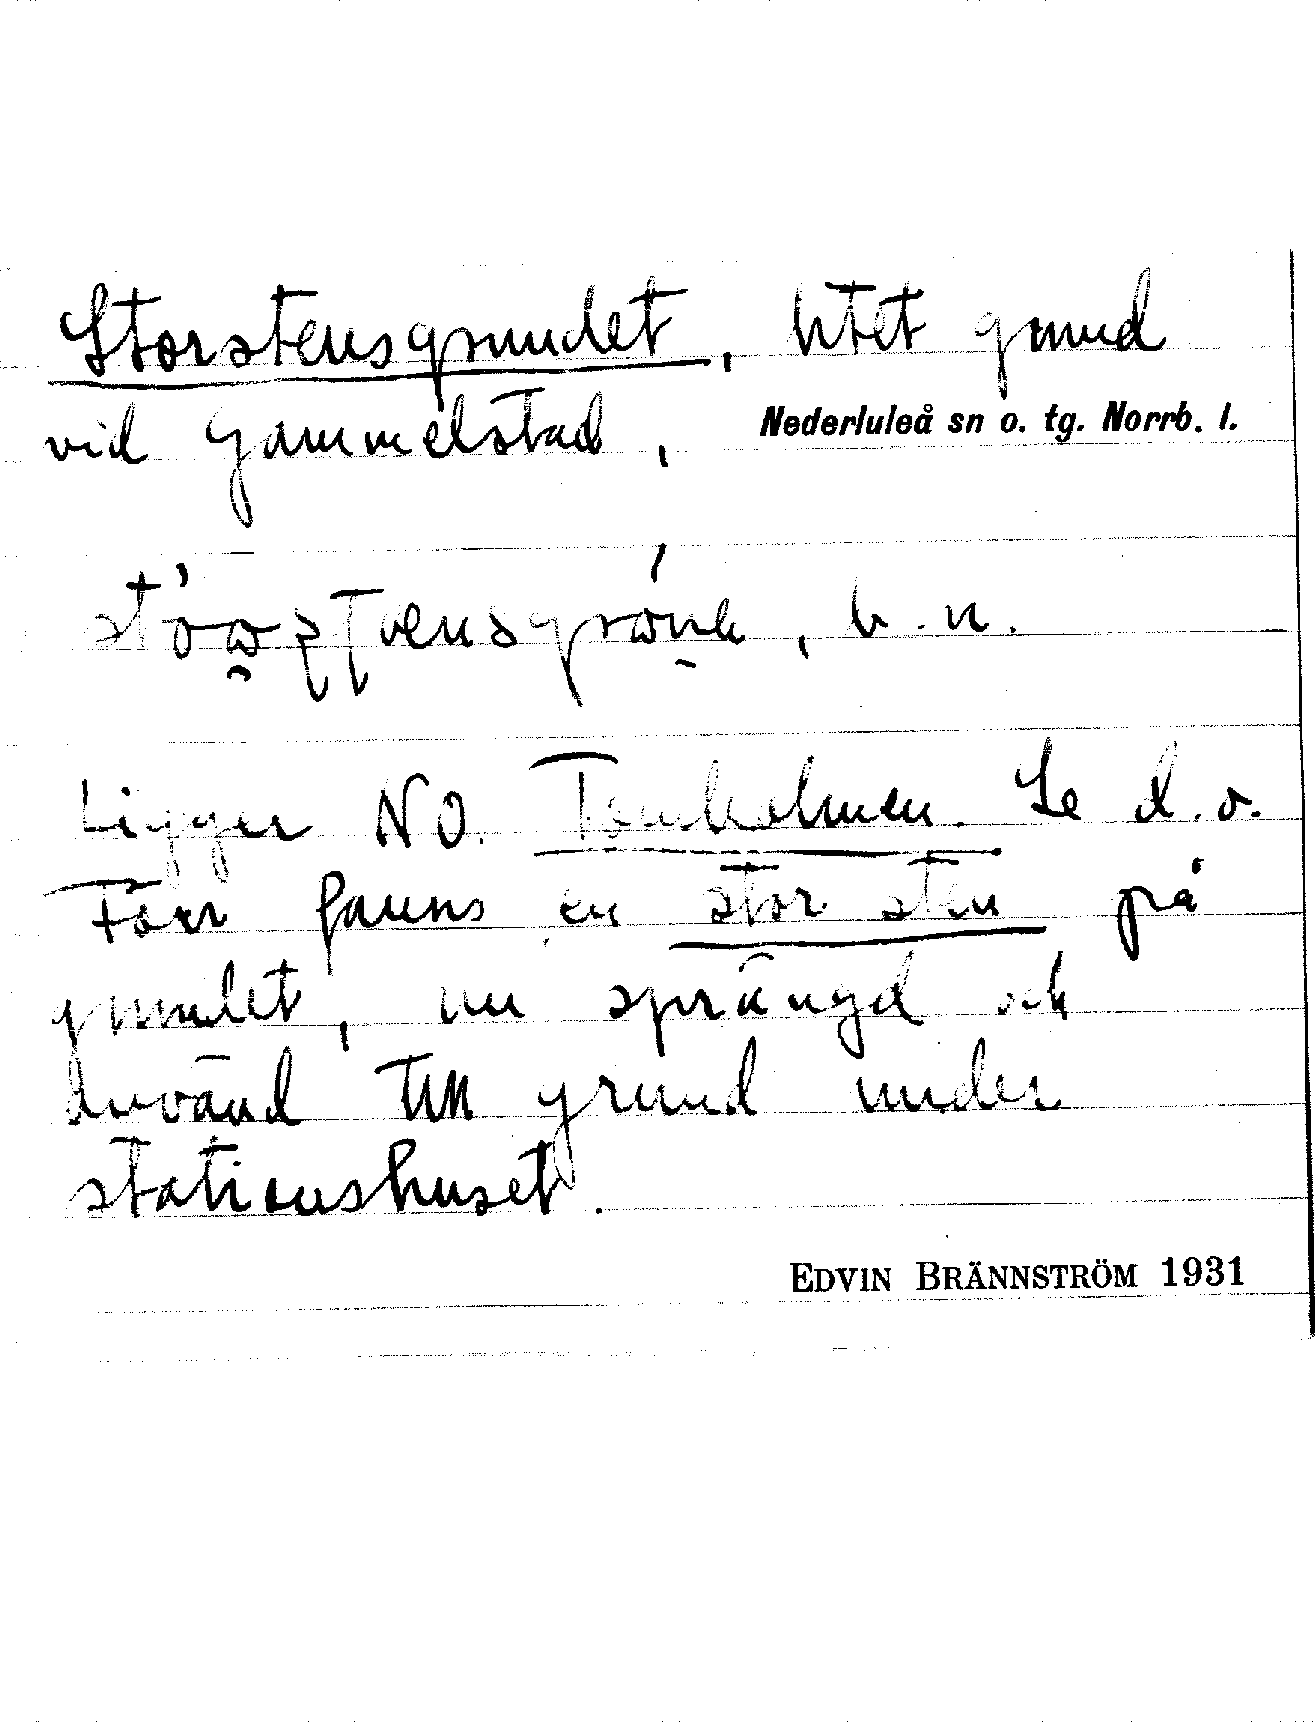 Storstensgrundet, litet grund
vid Gammelstad, Nederluleå sn o. tg. Norrb. l.
b. n.
Ligger NO. Tomholmen. Se d. o.
Förr fanns en stor sten på
grundet, nu sprängd och
använd till grund under
stationshuset.
EDVIN BRÄNNSTRÖM 1931